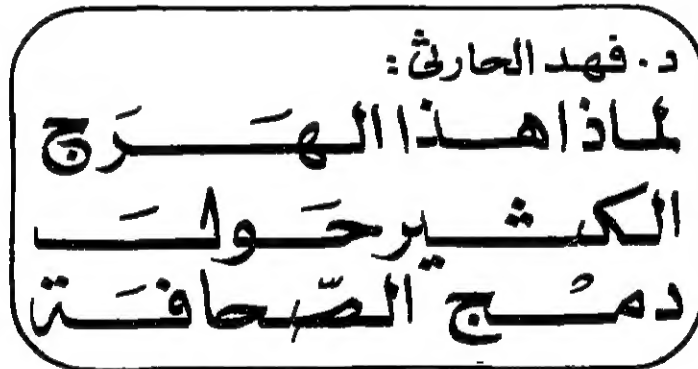 د. فهد الحارثي:
لماذا هذا الهَرَج
الكثير حَول
دمْج الصّحافَة